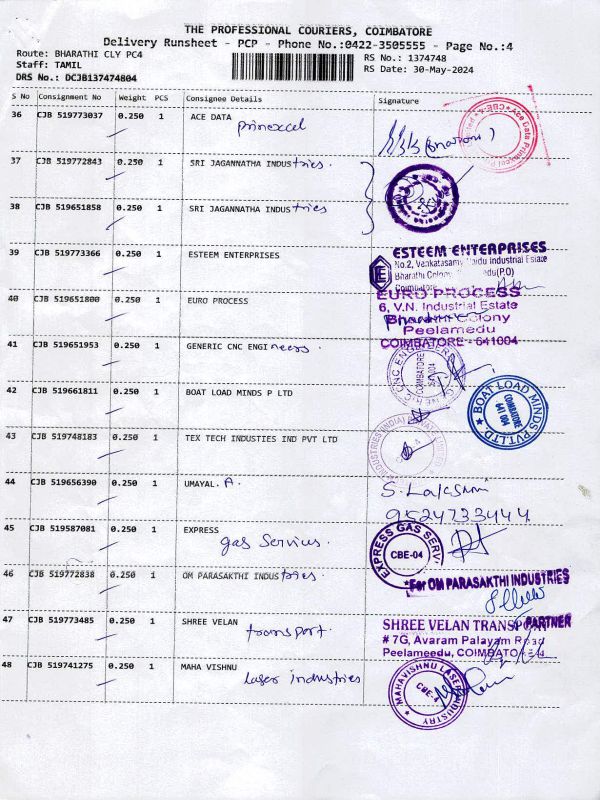 THE PROFESSIONAL COURIERS, COIMBATORE
Delivery Runsheet - PCP - Phone No.:0422-3505555 - Page No.:4
Route: BHARATHI CLY PC4
Staff: TAMIL
DRS No.: DCJB137474804
RS No.: 1374748
RS Date: 30-May-2024
S No Consignment No Weight PCS Consignee Details Signature
36 CJB 519773037 0.250 1 ACE DATA
prinexcel
37 CJB 519772843 0.250 1 SRI JAGANNATHA INDUStries.
38 CJB 519651858 0.250 1 SRI JAGANNATHA INDUStries
39 CJB 519773366 0.250 1 ESTEEM ENTERPRISES
ESTEEM ENTERPRISES
No.2, Venkatasamy Naidu Industrial Estate
Bharathi Colony
Coimbatore
40 CJB 519651800 0.250 1 EURO PROCESS
EURO PROCESS
6, V.N. Industrial Estate
Bharathi Colony
Peelamedu
COIMBATORE - 641004
41 CJB 519651953 0.250 1 GENERIC CNC ENGIneers.
COIMBATORE
641 004
42 CJB 519661811 0.250 1 BOAT LOAD MINDS P LTD
BOAT LOAD MINDS PVT.LTD
COIMBATORE
641 004
43 CJB 519748183 0.250 1 TEX TECH INDUSTIES IND PVT LTD
44 CJB 519656390 0.250 1 UMAYAL. A.
S. Lakshmi
9524733444
45 CJB 519587081 0.250 1 EXPRESS
gas Services.
EXPRESS GAS SERV
CBE-04
46 CJB 519772838 0.250 1 OM PARASAKTHI INDUStries.
For OM PARASAKTHI INDUSTRIES
PARTNER
47 CJB 519773485 0.250 1 SHREE VELAN
transport.
SHREE VELAN TRANSPORT
# 7G, Avaram Palayam Road
Peelameedu, COIMBATORE
48 CJB 519741275 0.250 1 MAHA VISHNU
laser industries
MAHAVISHNU LASER INDUSTRY
CBE-4